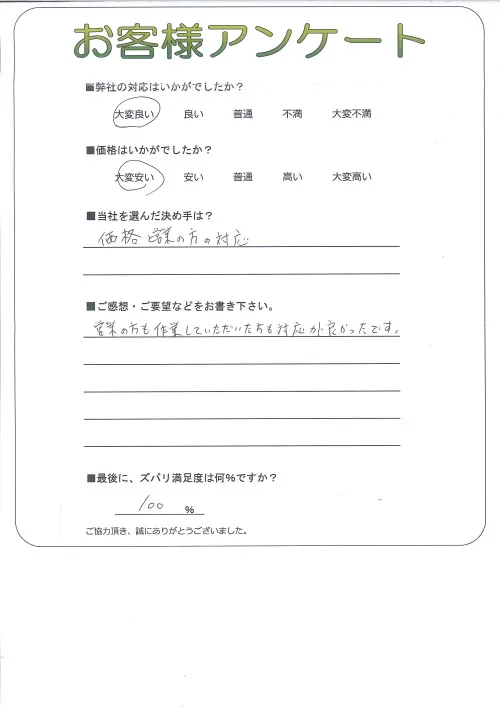 お客様アンケート
■弊社の対応はいかがでしたか?
大変良い 良い 普通 不満 大変不満
■価格はいかがでしたか?
大変安い 安い 普通 高い 大変高い
■当社を選んだ決め手は?
価格 営業の方の対応
■ご感想・ご要望などをお書き下さい。
営業の方も作業していただいたも対応が良かったです。
■最後に、ズバリ満足度は何%ですか?
100 %
ご協力頂き、誠にありがとうございました。